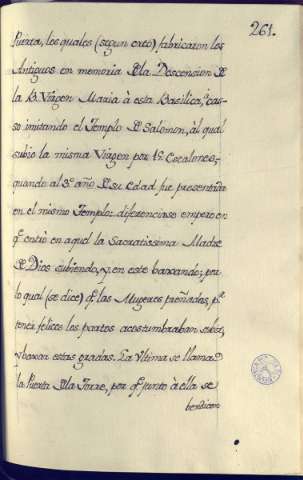 261.
Puerta, los quales (segun creo) fabricaron los
Antiguos en memoria de la Descension de
la B. Virgen Maria à esta Basilica, ò ca-
so imitando el Templo de Salomon, àl qual
subio la misma Virgen por 15 Escalones,
quando al 3º año de su Edad fue presentada
en el mismo Templo: diferenciase empero en
q̃ entrò en aquel la Sacratissima Madre
de Dios subiendo, y, en este baxando; por
lo qual (se dice) q̃ las Mugeres preñadas, pª
tener felices los partos acostumbraban subir,
y baxar estas gradas. La Vltima se llama
la Puerta de la Torre, por q̃ junto à ella se
bendicen